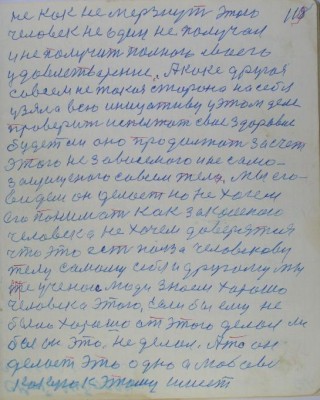 не как не мерзнут этого 118
человек не один не получал
и не получит полного своего
удовлетворение, А какс другая
совсем не такая сторона на себя
узяла всю инициативу у этом деле
проверит испытат свае здоровье
будет ли оно продолжат за счет
этого не зависемого и не само-
защищеного совсем тела, мы его
видем он делает но не хочем
его понимат как законого
человека не хочем доверятся
что это ест полза человекову
телу самому себя и другому мы
те ученого люди знаем хорошо
человека этого, если бы ему не
было хорошо от этого делал ли
бы он это, не делал. А то он
делает это одно а
как к этому имеет